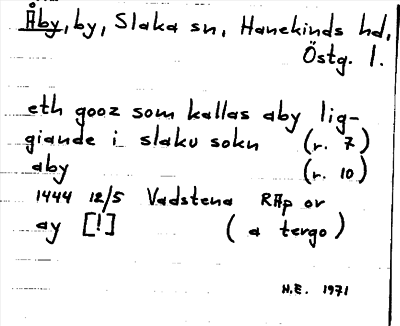 Åby, by, Slaka sn, Hanekinds hd,
Östg. l.
eth gooz som kallas aby lig-
giande i slaku sokn (r. 7)
aby (r. 10)
1444 12/5 Vadstena RAp or
ay [!] (a tergo)
H.E. 1971